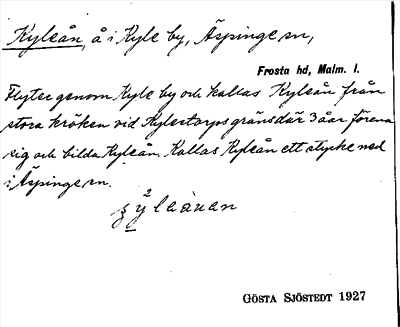 Kyleån, å i Kyle by, Äspinge sn,
Frosta hd, Malm. l.
Flyter genom Kyle by och kallas Kyleån från
stora kröken vid Kylestorps gräns där 3 åar förena
sig och bilda Kyleån. Kallas Kyleån ett stycke ned
i Äspinge sn.
GÖSTA SJÖSTEDT 1927